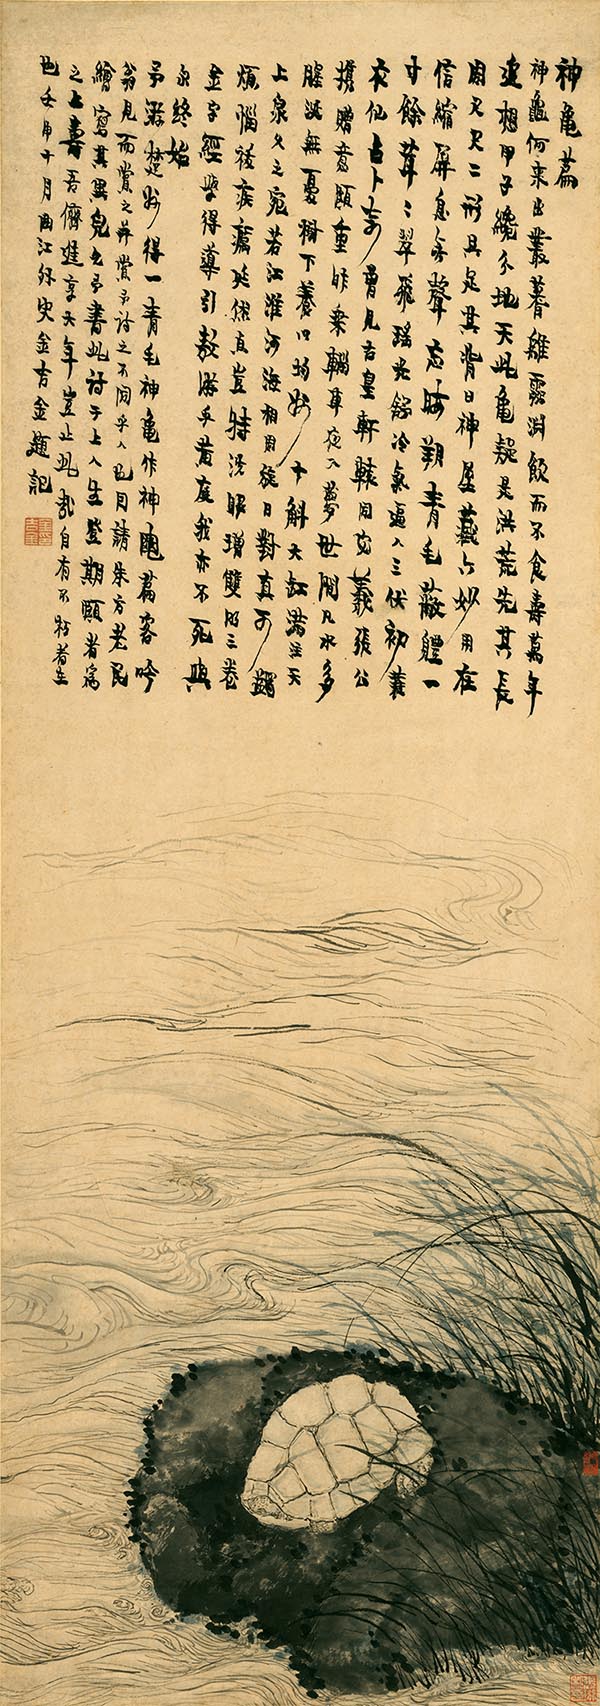 神龜篇
神龜何來出叢蓍離靈淵飲而不食壽萬年
遠想甲子纔分地天此龜疑是洪荒先其長
周尺尺二形具足其背日神屋藏六妙用在
信縮屏息無聲忘晦朔青毛蔽軆一
寸餘茸〻翠飛瑤光冷氣逼人三伏初蓑
衣仙古卜奇曾見古皇軒轅同宓羲張公
攜贈意頗重昨乘輜車夜入夢世間凡水多
腥涎無憂樹下養以均州十斛大缸滿注天
上泉久之宛若江淮河海相周旋日對真可蠲
煩惱祛疾癘延僊真豈特洗眼增雙明三卷
金字經學得導引教游乎黃庭我亦不死與
汝終始
予游楚州得一青毛神龜作神龜篇客吟
翁見而賞之并賞予詩之不同乎人也因請朱方老民
繪寫其異皃也予書此詩于上人生登期頤者寓
之上壽吾儕進享大年豈止此哉自有不朽者在
也壬申十月曲江外史金吉金題記